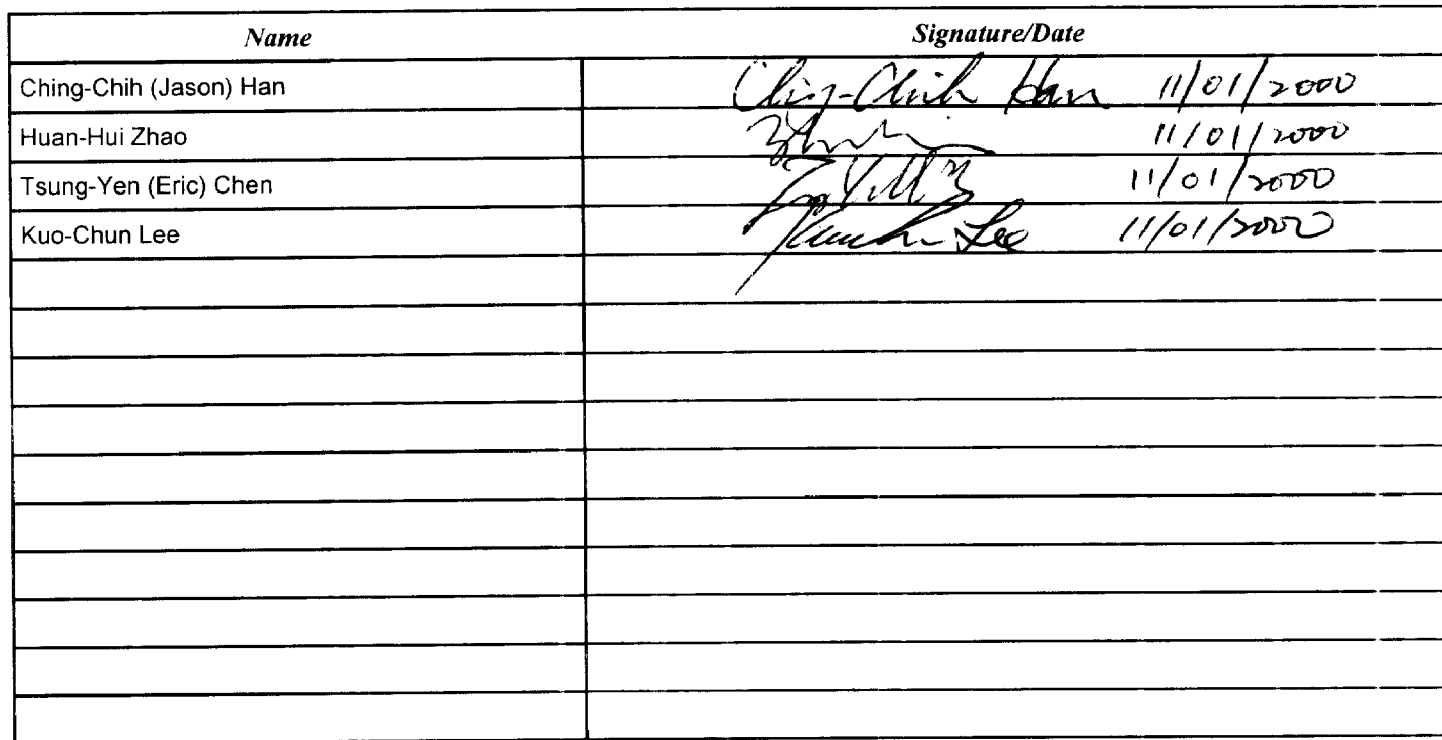 Name Signature/Date
Ching-Chih (Jason) Han Ching-Chih Han 11/01/2000
Huan-Hui Zhao 11/01/2000
Tsung-Yen (Eric) Chen 11/01/2000
Kuo-Chun Lee Lee 11/01/2000